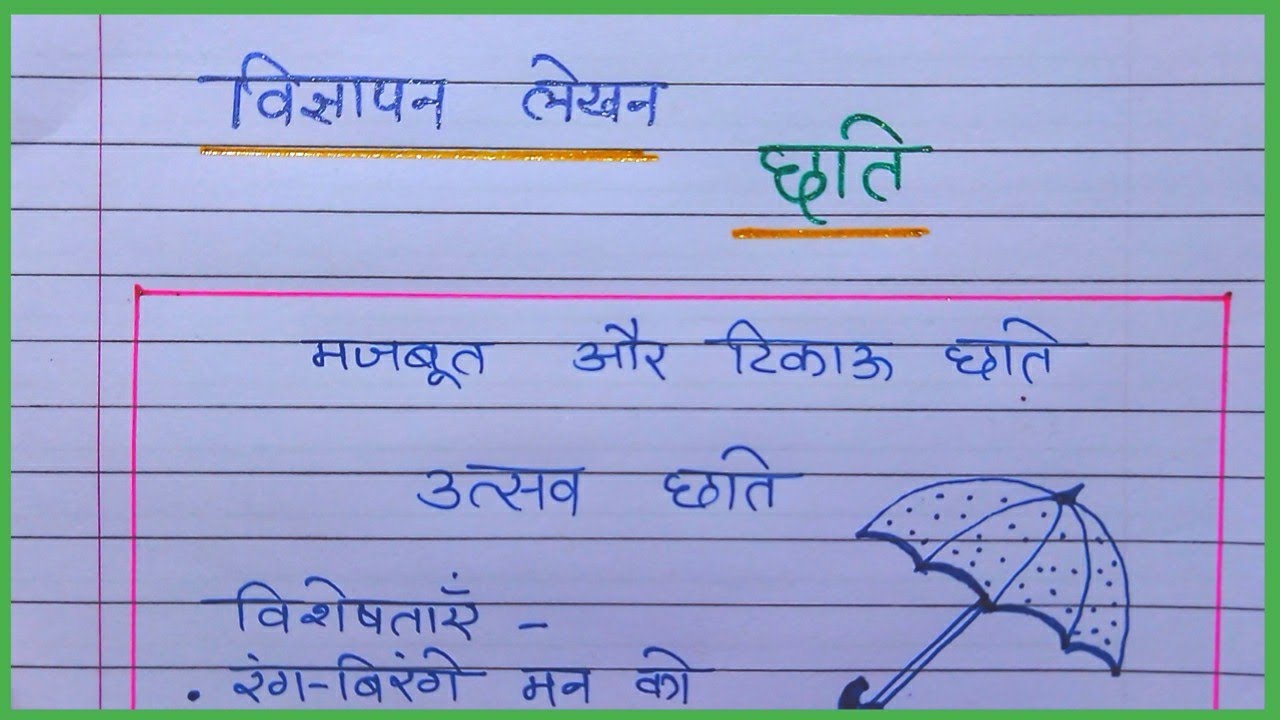 विज्ञापन लेखन
छाते
मजबूत और टिकाऊ छाते
उत्सव छाते
विशेषताएँ -
. रंग-बिरंगे मन को